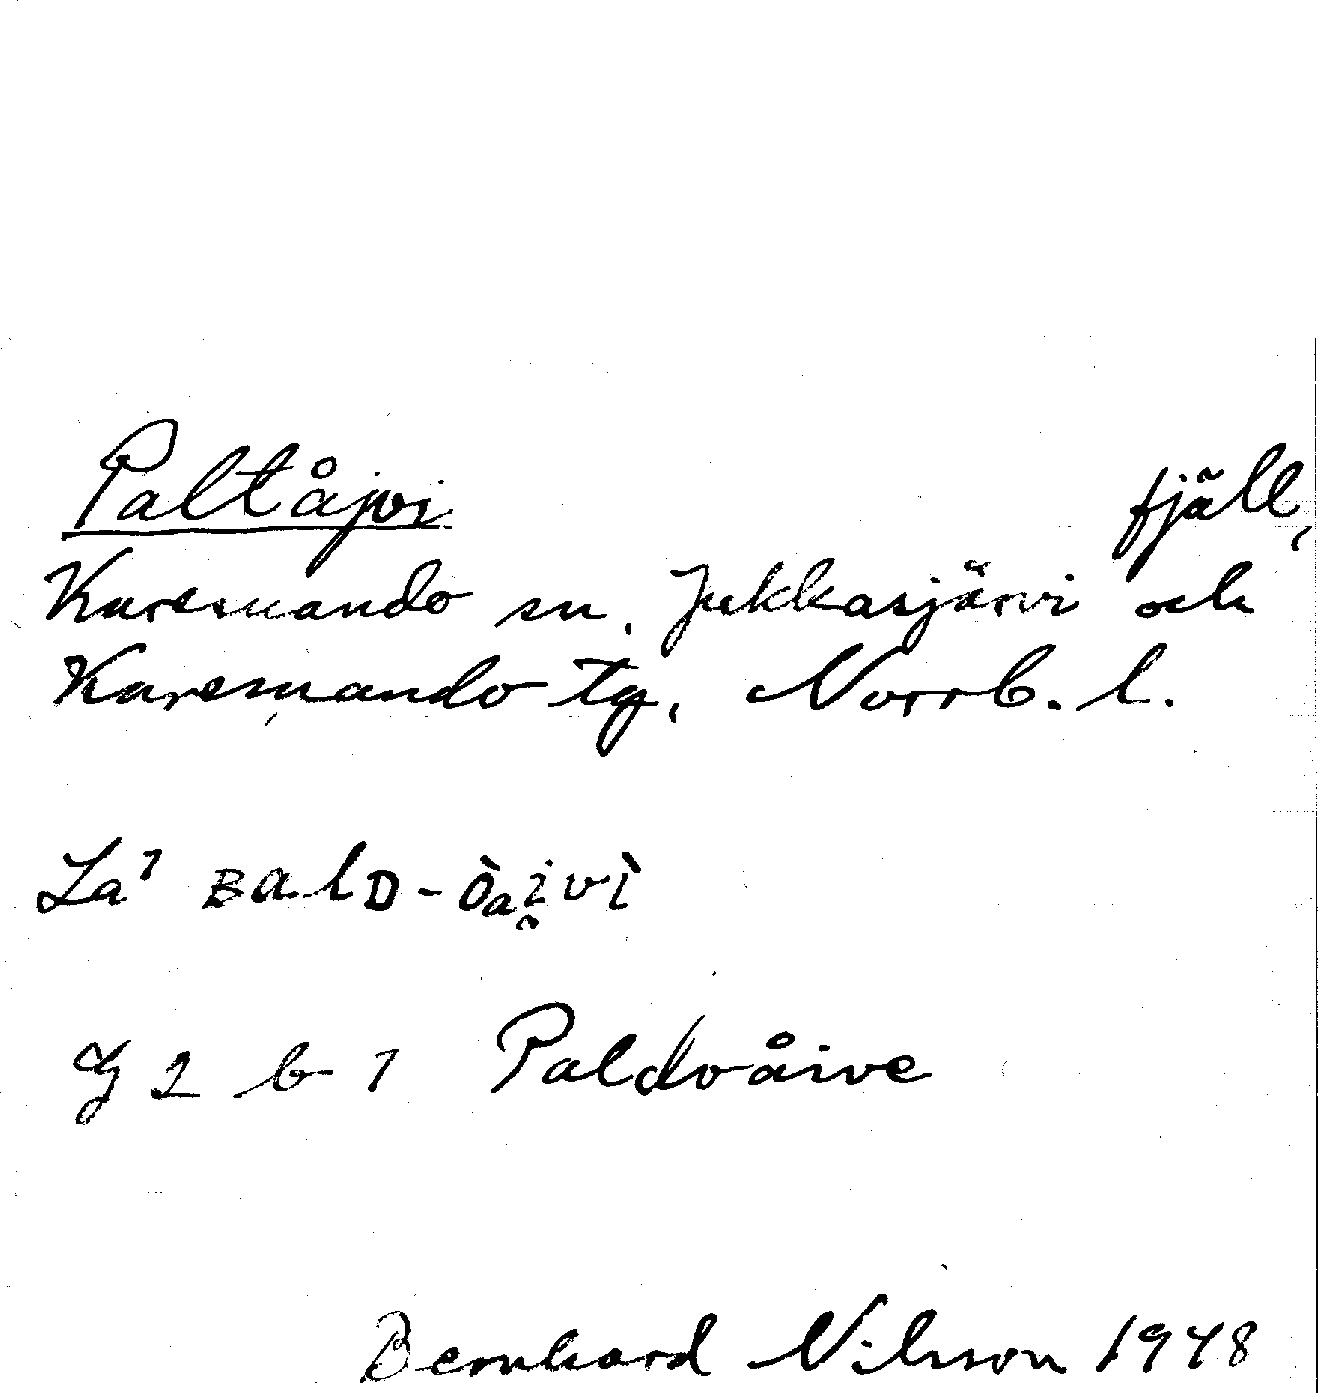 Paltåjvi fjäll,
Karesuando sn. Jukkasjärvi och
Karesuando tg, Norrb. l.
La¹ BalD-òai̯vì
G 2 b 1 Paldvåive
Bernhard Nilsson 1948